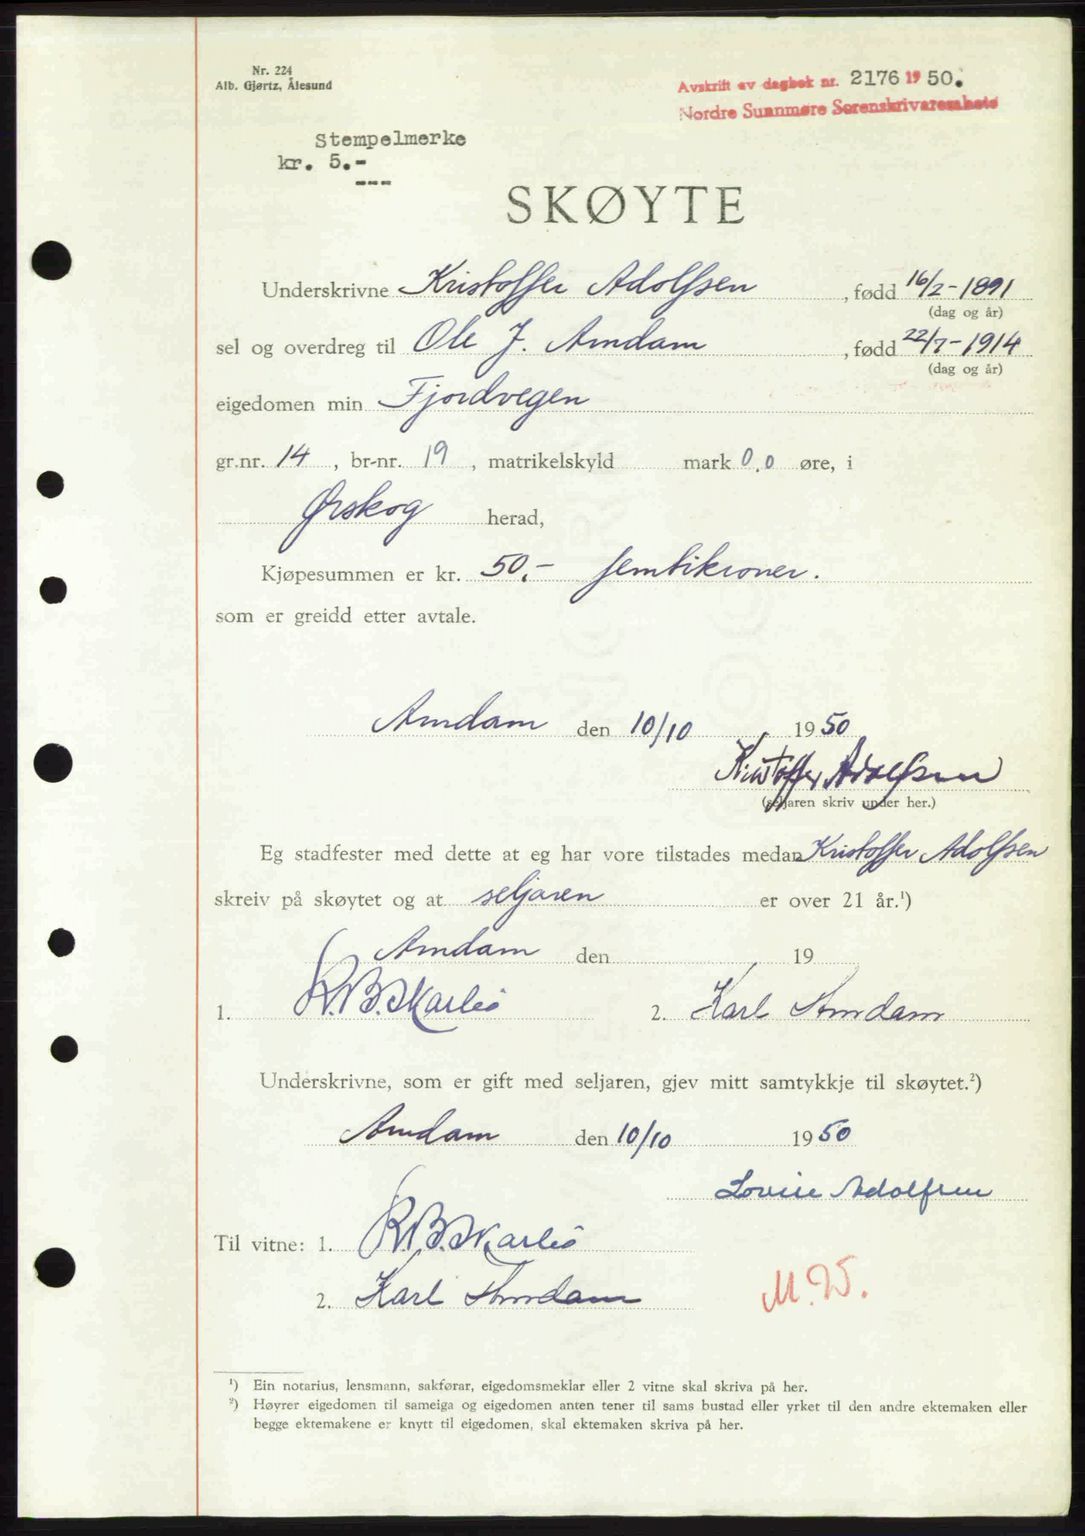 Nr. 224
Alb. Gjørtz, Ålesund
Avskrift av dagbok nr. 2176 1950.
Nordre Sunnmøre Sorenskrivarembete
Stempelmerke
kr. 5.-
---
SKØYTE
Underskrivne Kristoffer Adolfsen, fødd 16/2-1891
(dag og år)
sel og overdreg til Ole J. Amdam, fødd 22/7-1914
(dag og år)
eigedomen min Fjordvegen
gr.nr. 14, br-nr. 19, matrikelskyld mark 0,0 øre, i
Ørskog herad,
Kjøpesummen er kr. 50,- femtikroner.
som er greidd etter avtale.
Amdam den 10/10 1950
Kristoffer Adolfsen
(seljaren skriv under her.)
Eg stadfester med dette at eg har vore tilstades medan Kristoffer Adolfsen
skreiv på skøytet og at seljaren er over 21 år.¹)
Amdam den 19
1. K.B. Skarbø 2. Karl Amdam
Underskrivne, som er gift med seljaren, gjev mitt samtykkje til skøytet.²)
Amdam den 10/10 1950
Lovise Adolfsen
Til vitne: 1. K.B. Skarbø
2. Karl Amdam
M.W.
¹) Ein notarius, lensmann, sakførar, eigedomsmeklar eller 2 vitne skal skriva på her.
²) Høyrer eigedomen til sameiga og eigedomen anten tener til sams bustad eller yrket til den andre ektemaken eller
begge ektemakene er knytt til eigedomen, skal ektemaken skriva på her.